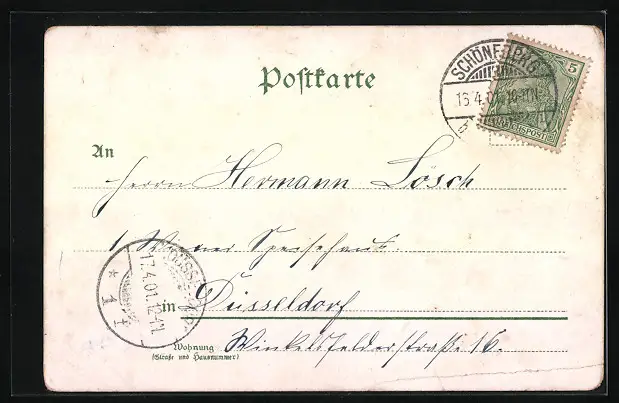 Postkarte
SCHÖNEBERG
16.4.01. 12-1N.
5
REICHSPOST
An
Herrn Hermann Lösch
1. Wiener Speisehaus.
DÜSSELDORF
17.4.01. 12-1N.
* 1 f
in Düsseldorf
Wohnung
(Straße und Hausnummer)
Winkelsfelderstraße 16.